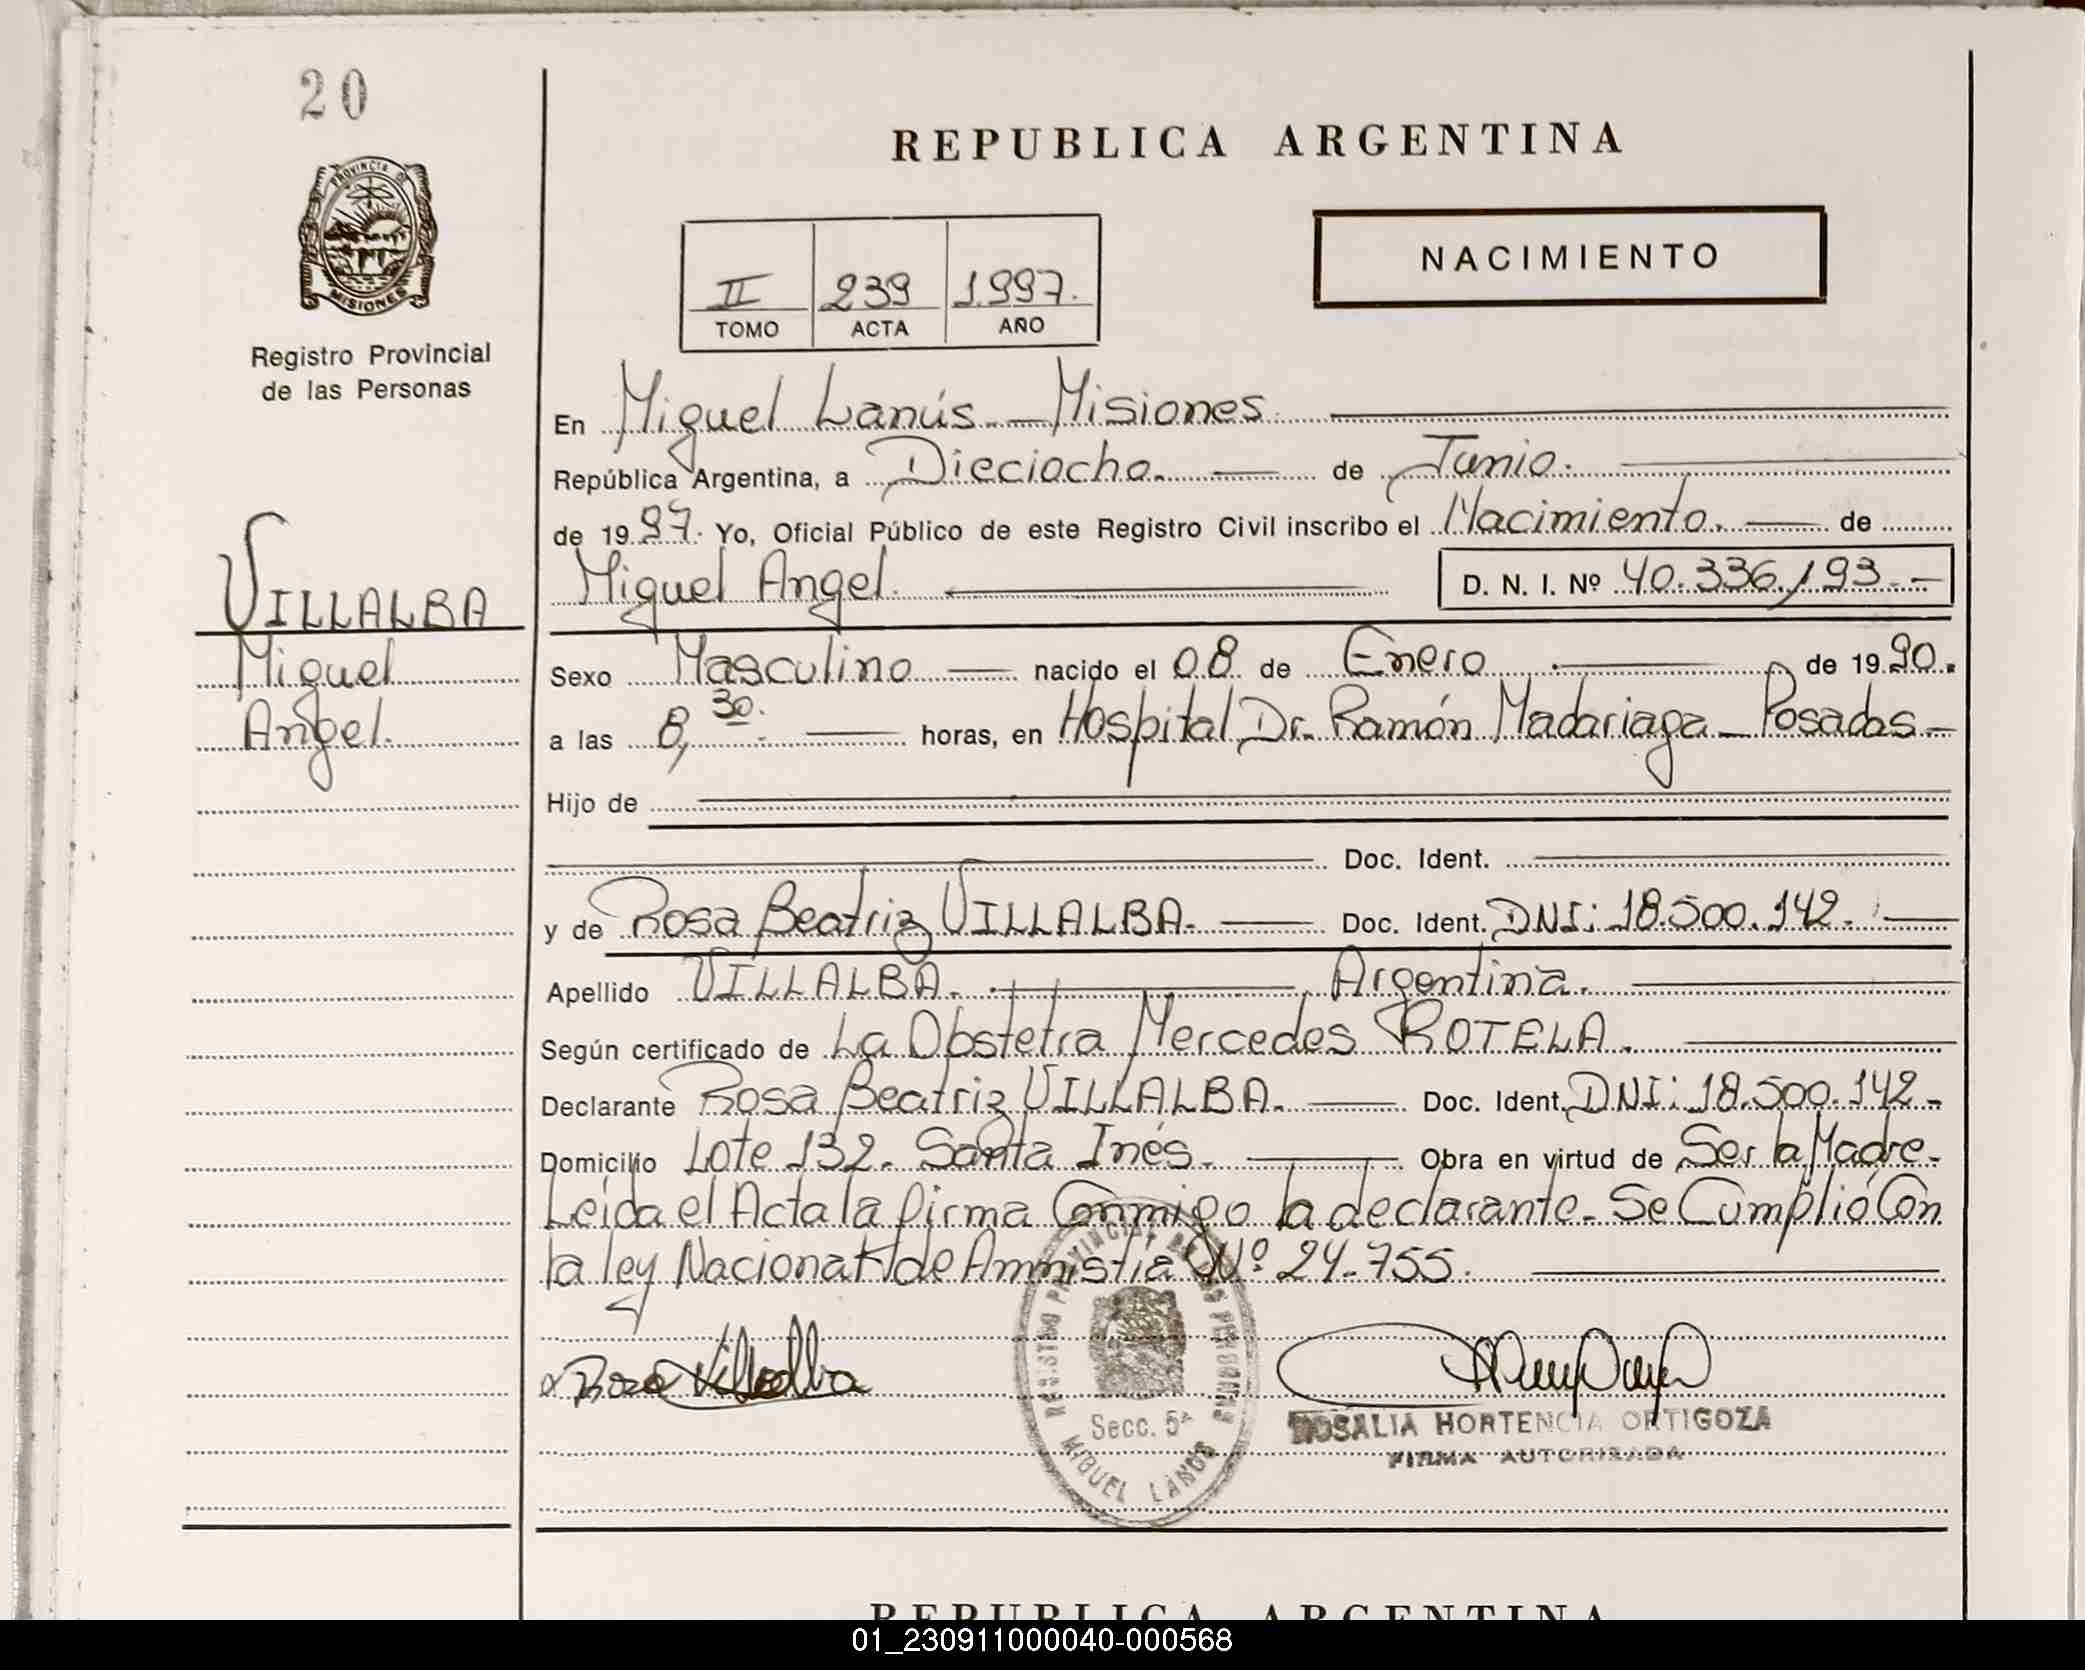 20
PROVINCIA DE
MISIONES
Registro Provincial
de las Personas
VILLALBA
Miguel
Angel.
REPUBLICA ARGENTINA
NACIMIENTO
II 239 1997.
TOMO ACTA AÑO
En Miguel Lanús - Misiones
República Argentina, a Dieciocho. de Junio.
de 1997. Yo, Oficial Público de este Registro Civil inscribo el Nacimiento. de
Miguel Angel. D. N. I. Nº 40.336.193.-
Sexo Masculino nacido el 08 de Enero de 1990.
a las 8,30. horas, en Hospital Dr. Ramón Madariaga - Posadas -
Hijo de
Doc. Ident.
y de Rosa Beatriz VILLALBA. Doc. Ident. DNI: 18.500.142.
Apellido VILLALBA. Argentina.
Según certificado de La Obstetra Mercedes ROTELA.
Declarante Rosa Beatriz VILLALBA. Doc. Ident. DNI: 18.500.142-
Domicilio Lote 132. Santa Inés. Obra en virtud de Ser la Madre-
Leida el Acta la firma Conmigo la declarante- Se Cumplió Con
la ley Nacional de Amnistia Nº 24.755.
Rosa Villalba
REGISTRO PROVINCIAL DE LAS PERSONAS
Secc. 5ª
MIGUEL LANUS
ROSALIA HORTENCIA ORTIGOZA
FIRMA AUTORIZADA
REPUBLICA ARGENTINA
01_230911000040-000568